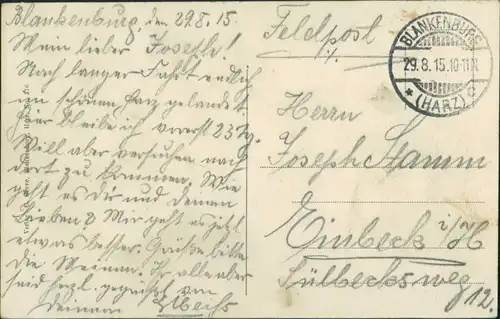 Blankenburg, den 29.8.15.
Mein lieber Joseph!
Nach langer Fahrt endlich
im schönen Harz gelandet.
Hier bleibe ich vorerst 23 Tg.
Will aber versuchen nach
dort zu kommen. Wie
geht es Dir und deinen
Lieben? Mir geht es jetzt
etwas besser. Grüße bitte
die Meinen. Ihr alle aber
seid herzl. gegrüßt von
Deinem
Feldpost
BLANKENBURG
29.8.15.10-11V.
* (HARZ) c
Herrn
Joseph Stamm
Einbeck i/H
Sülbecksweg
12.